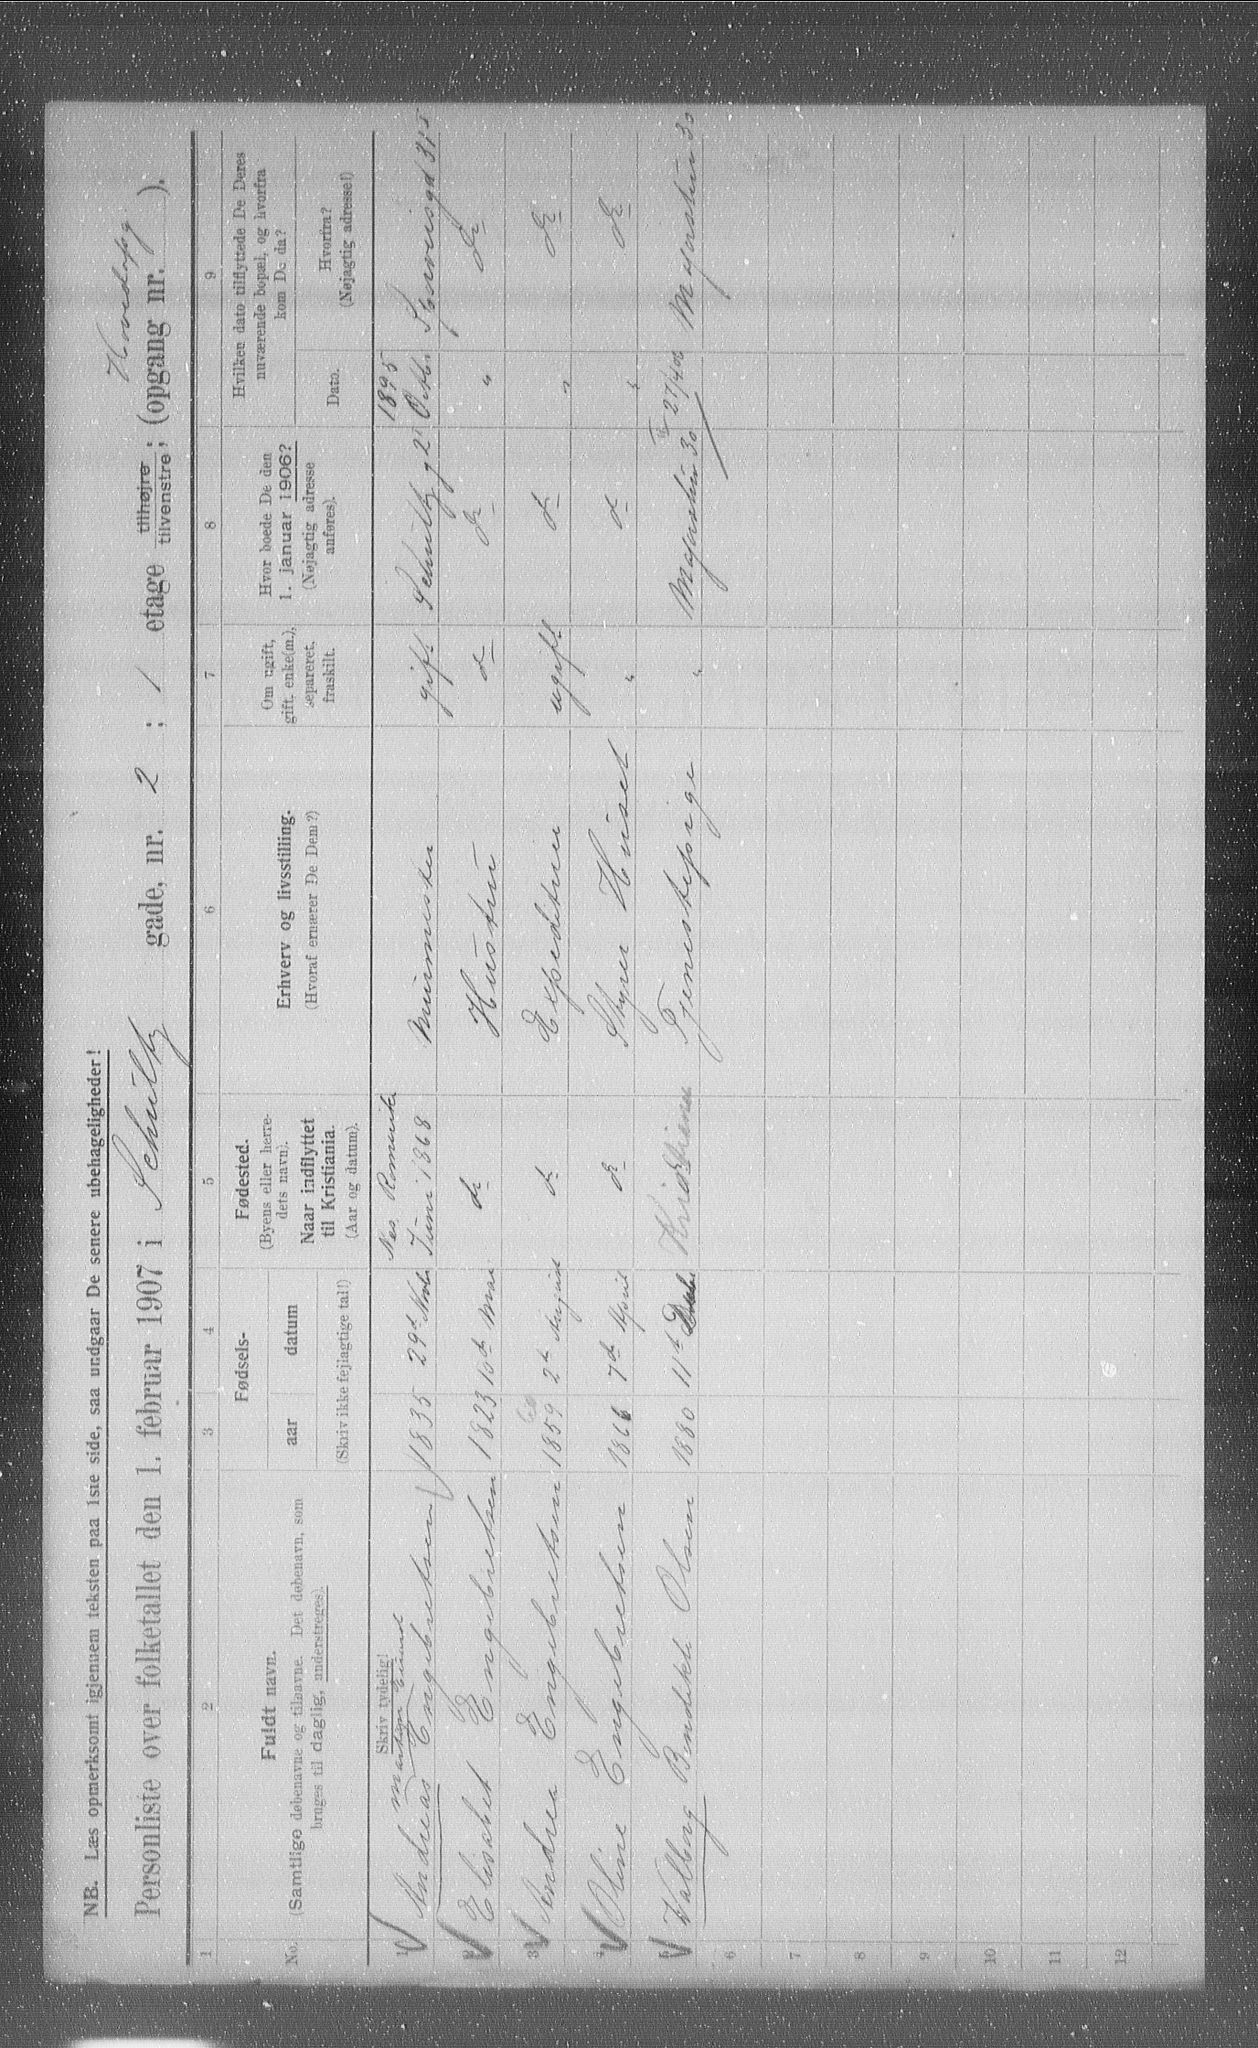 NB. Læs opmerksomt igjennem teksten paa 1ste side, saa undgaar De senere ubehageligheder!
Hovedopg
Personliste over folketallet den 1. februar 1907 i Schultz gade, nr. 2 ; 1 etage tilhøjre tilvenstre ; (opgang nr. ).
1 2 3 4 5 6 7 8 9
No.
Fuldt navn.
(Samtlige døbenavne og tilnavne. Det døbenavn, som
bruges til daglig, understreges).
Fødsels-
aar datum
(Skriv ikke fejlagtige tal!)
Fødested.
(Byens eller herre-
dets navn).
Naar indflyttet
til Kristiania.
(Aar og datum).
Erhverv og livsstilling.
(Hvoraf ernærer De Dem?)
Om ugift,
gift, enke(m.),
separeret,
fraskilt.
Hvor boede De den
1. januar 1906?
(Nøjagtig adresse
anføres).
Hvilken dato tilflyttede De Deres
nuværende bopæl, og hvorfra
kom De da?
Dato.
Hvorfra?
(Nøjagtig adresse!)
Skriv tydelig!
Nes Romerike 1895
1 Andreas Engebretsen 1835 29d Juni 1868 Murmester gift Schultz g 2 Octbr
2 Elisabet Engebretsen 1823 10de Mai do Hustru do do " do
3 Andrea Engebretsen 1859 2de August do Expeditrice ugift do " do
4 Oline Engebretsen 1866 7de April do Styrer Huset " do " do
5 Valborg Bendikte Olsen 1880 11te Tjenestepige " 30 27/4 06 30
6
7
8
9
10
11
12